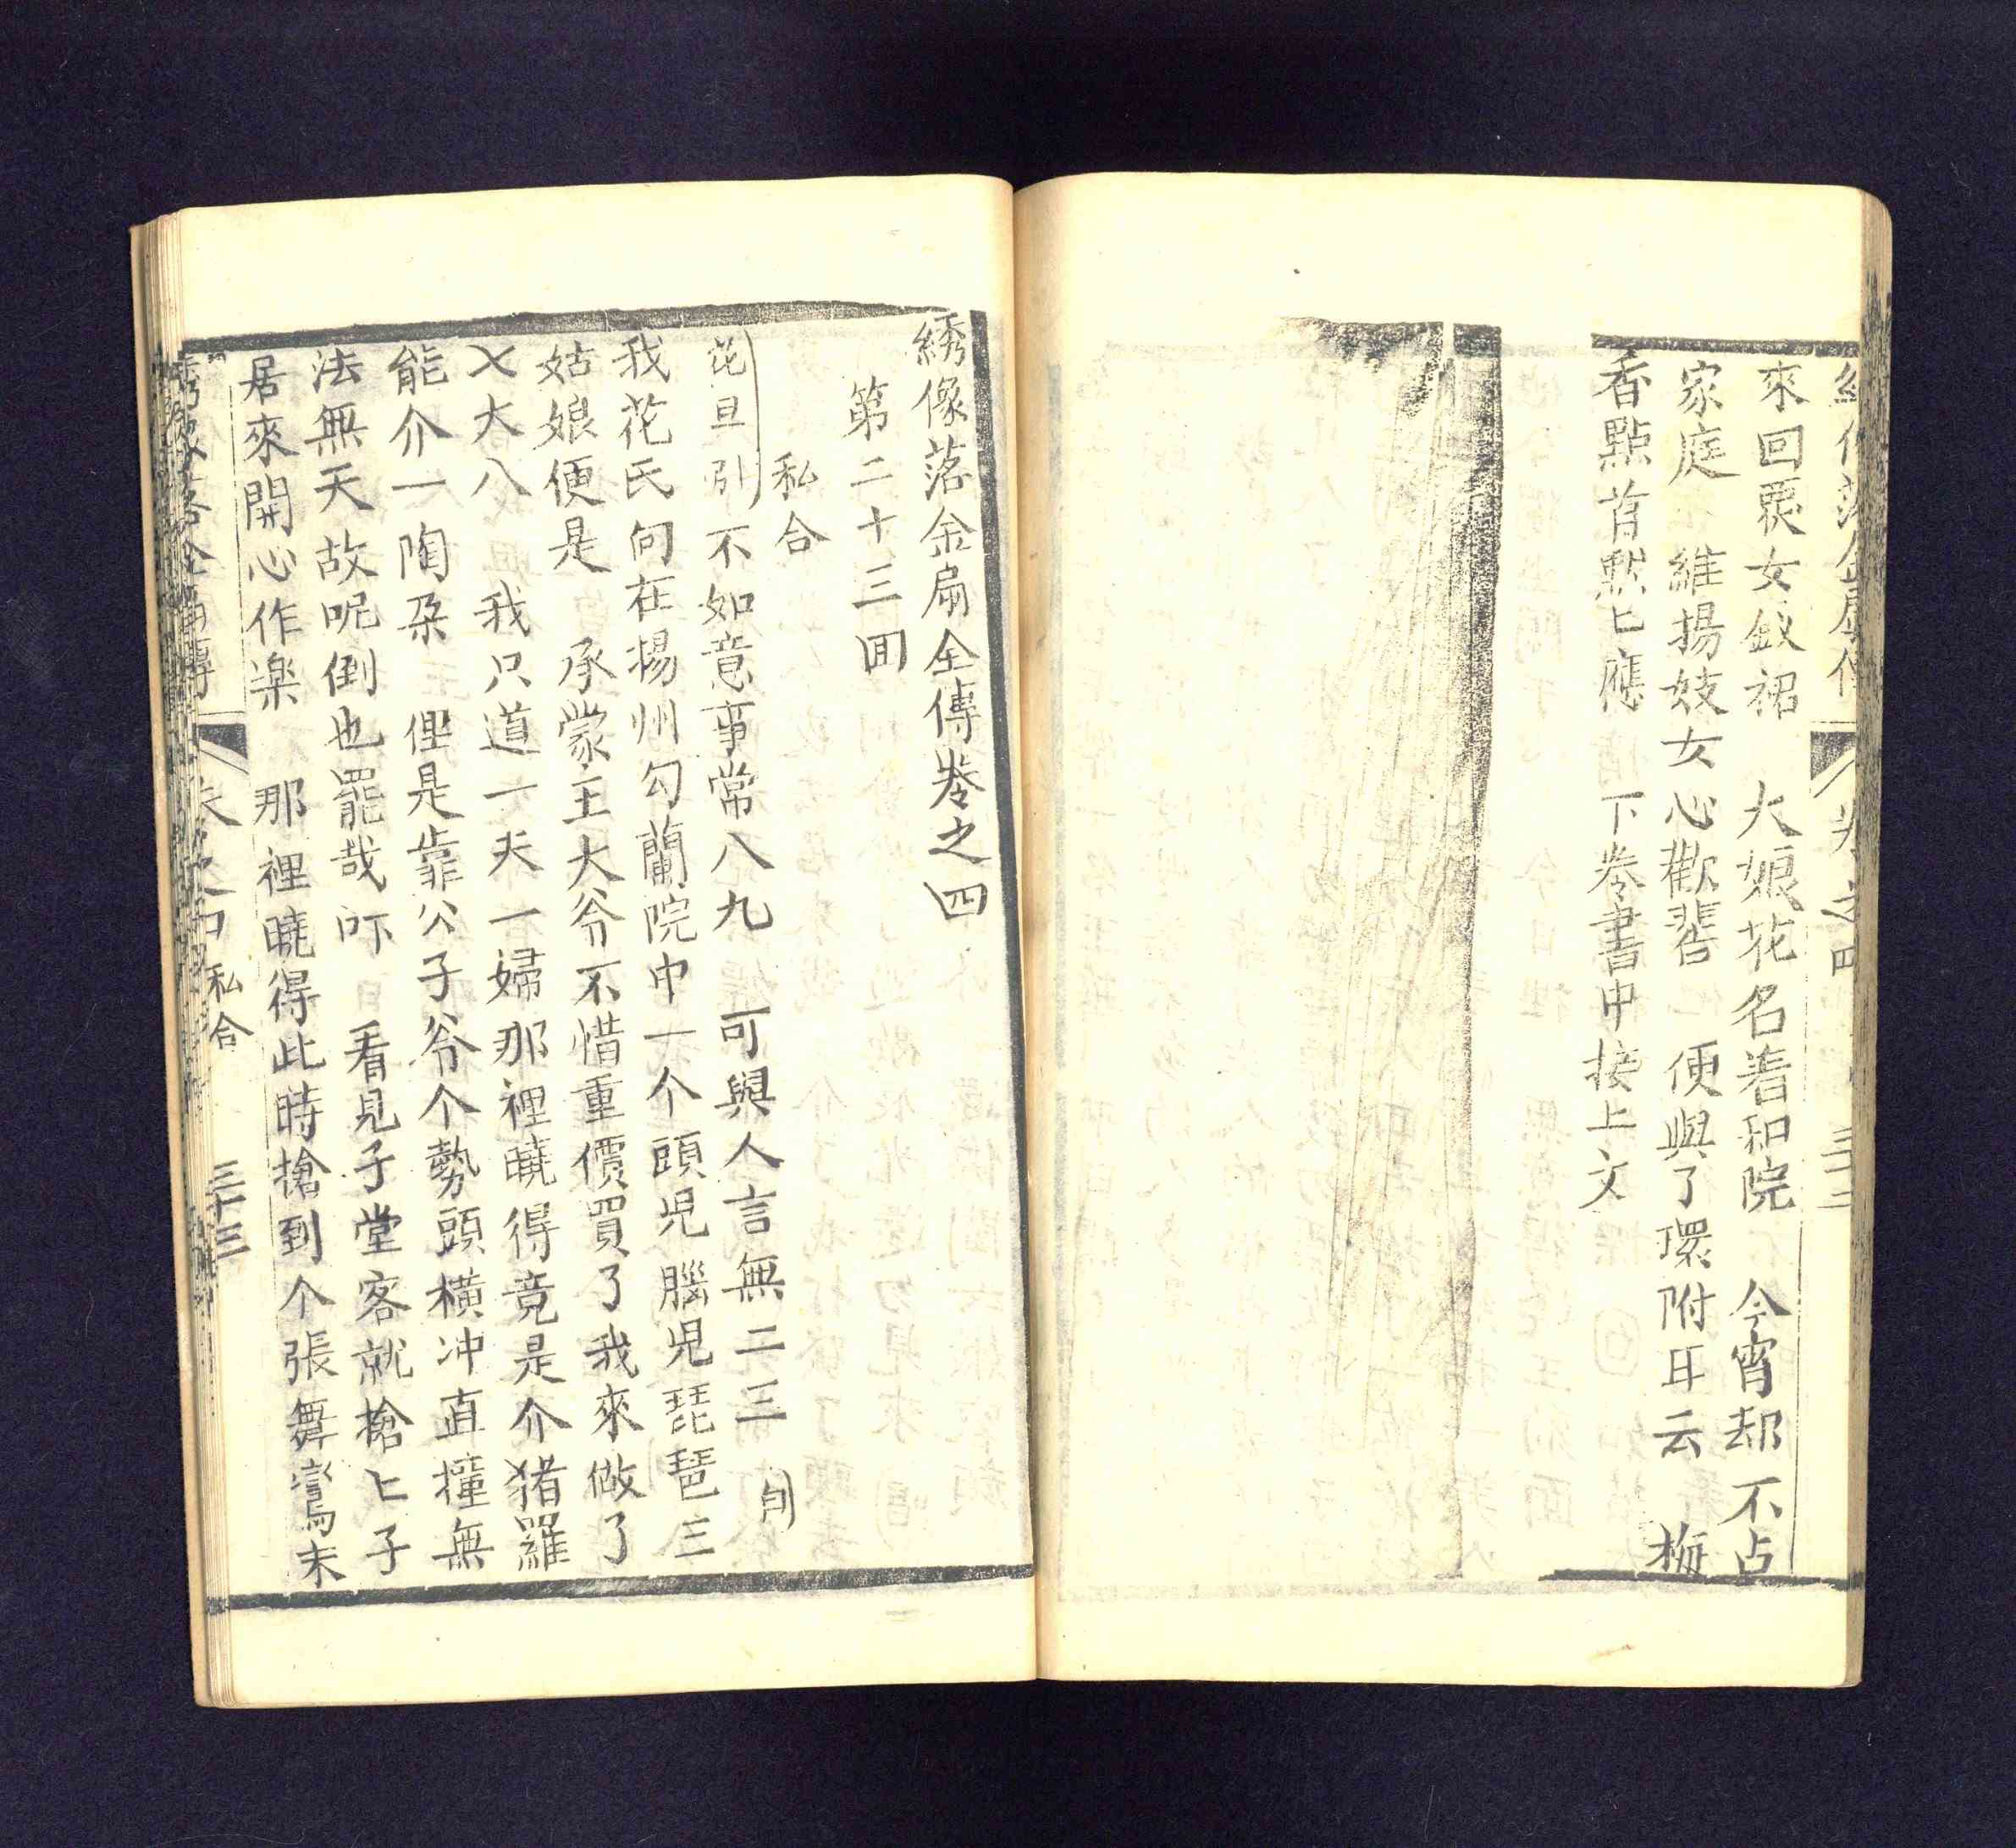 來回覂女釵裙　大娘花名著和院　今宵却不占
家庭　維揚妓女心歡誓　便與了環附耳云　梅
香點首默匕應　下卷書中接上文
綉像落金扇全傳卷之四
第二十三囬
私合
花旦引 不如意事常八九　可與人言無二三　白
我花氏向在揚州勾蘭院中一个頭児腦児琵琶三
姑娘便是　承蒙主大爷不惜重價買了我來做了
㐅大八　我只道一夫一婦那裡曉得竟是介猪羅
能介一陶朶　俚是靠公子爷个勢頭横冲直撞無
法無天故呢倒也罷哉吓　看見子堂客就搶匕子
居來開心作楽　那裡曉得此時搶到个張舞鸞末
卷之四 私合 三十三